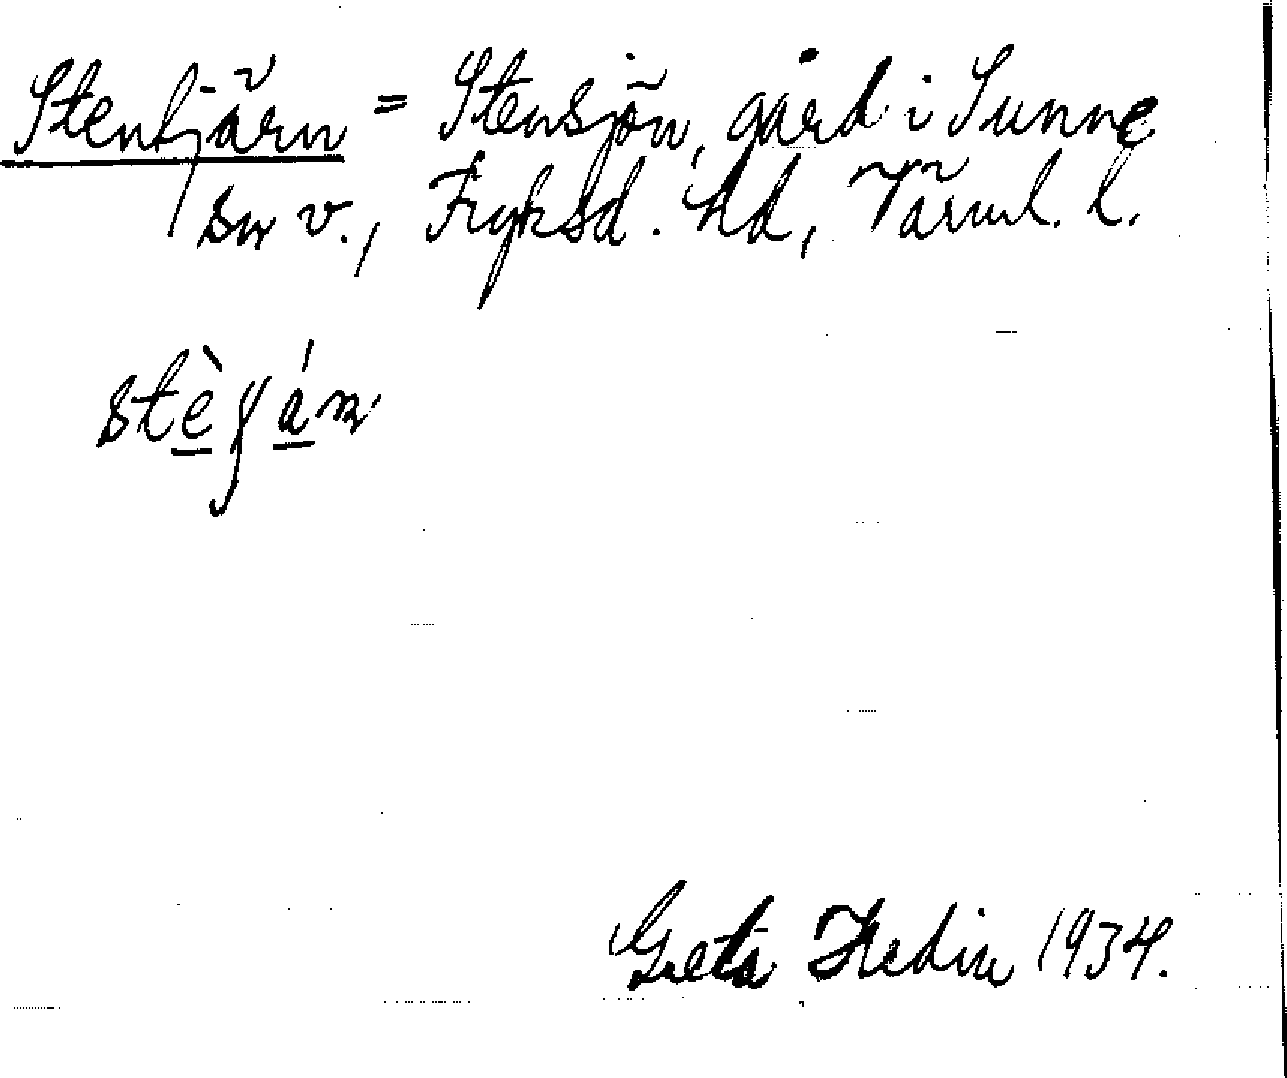 Stentjärn = Stensjön, gård i Sunne
sn v., Fryksd. hd, Värml. l.
stèɣán
Greta Hedin 1934.